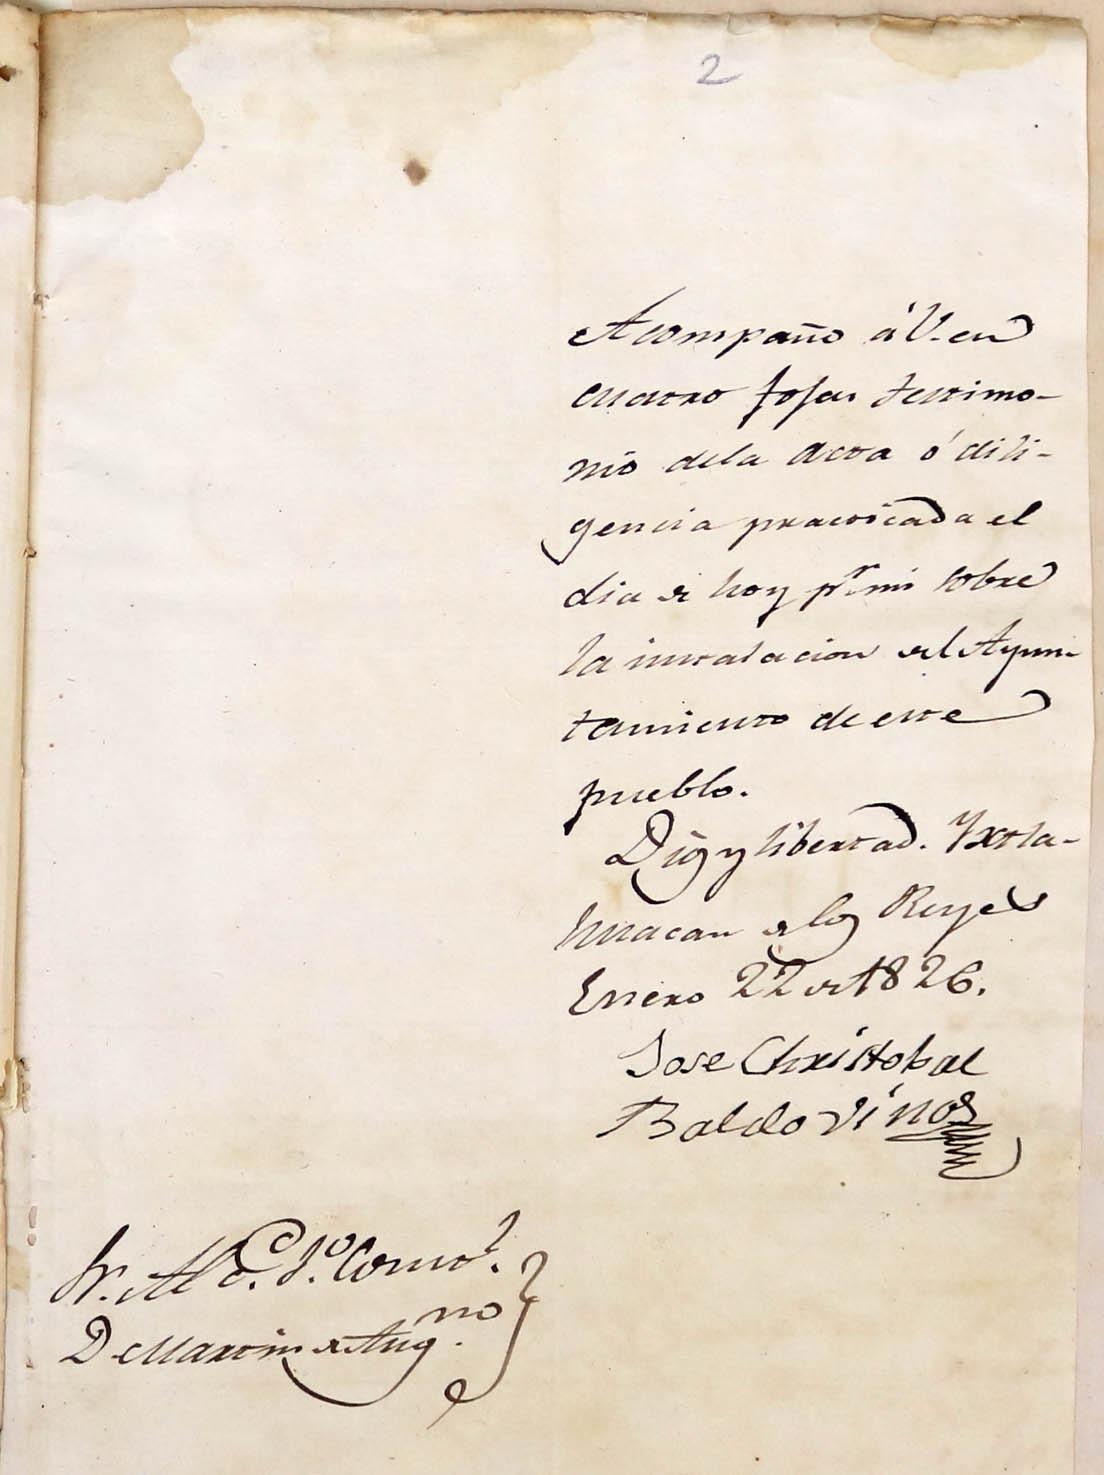 2
Acompaño á V. en
cuatro fojas testimo-
nio dela acta ó dili-
gencia practicada el
dia de hoy pr. mi sobre
la instalacion del Ayun-
tamiento de este
pueblo.
Dios y libertad. Yxtla-
huacan de los Reyes
Enero 22 de 1826.
Jose Christobal
Baldovinos
Sr. Alce. 1o. Constl.
D. Martin de Angno.